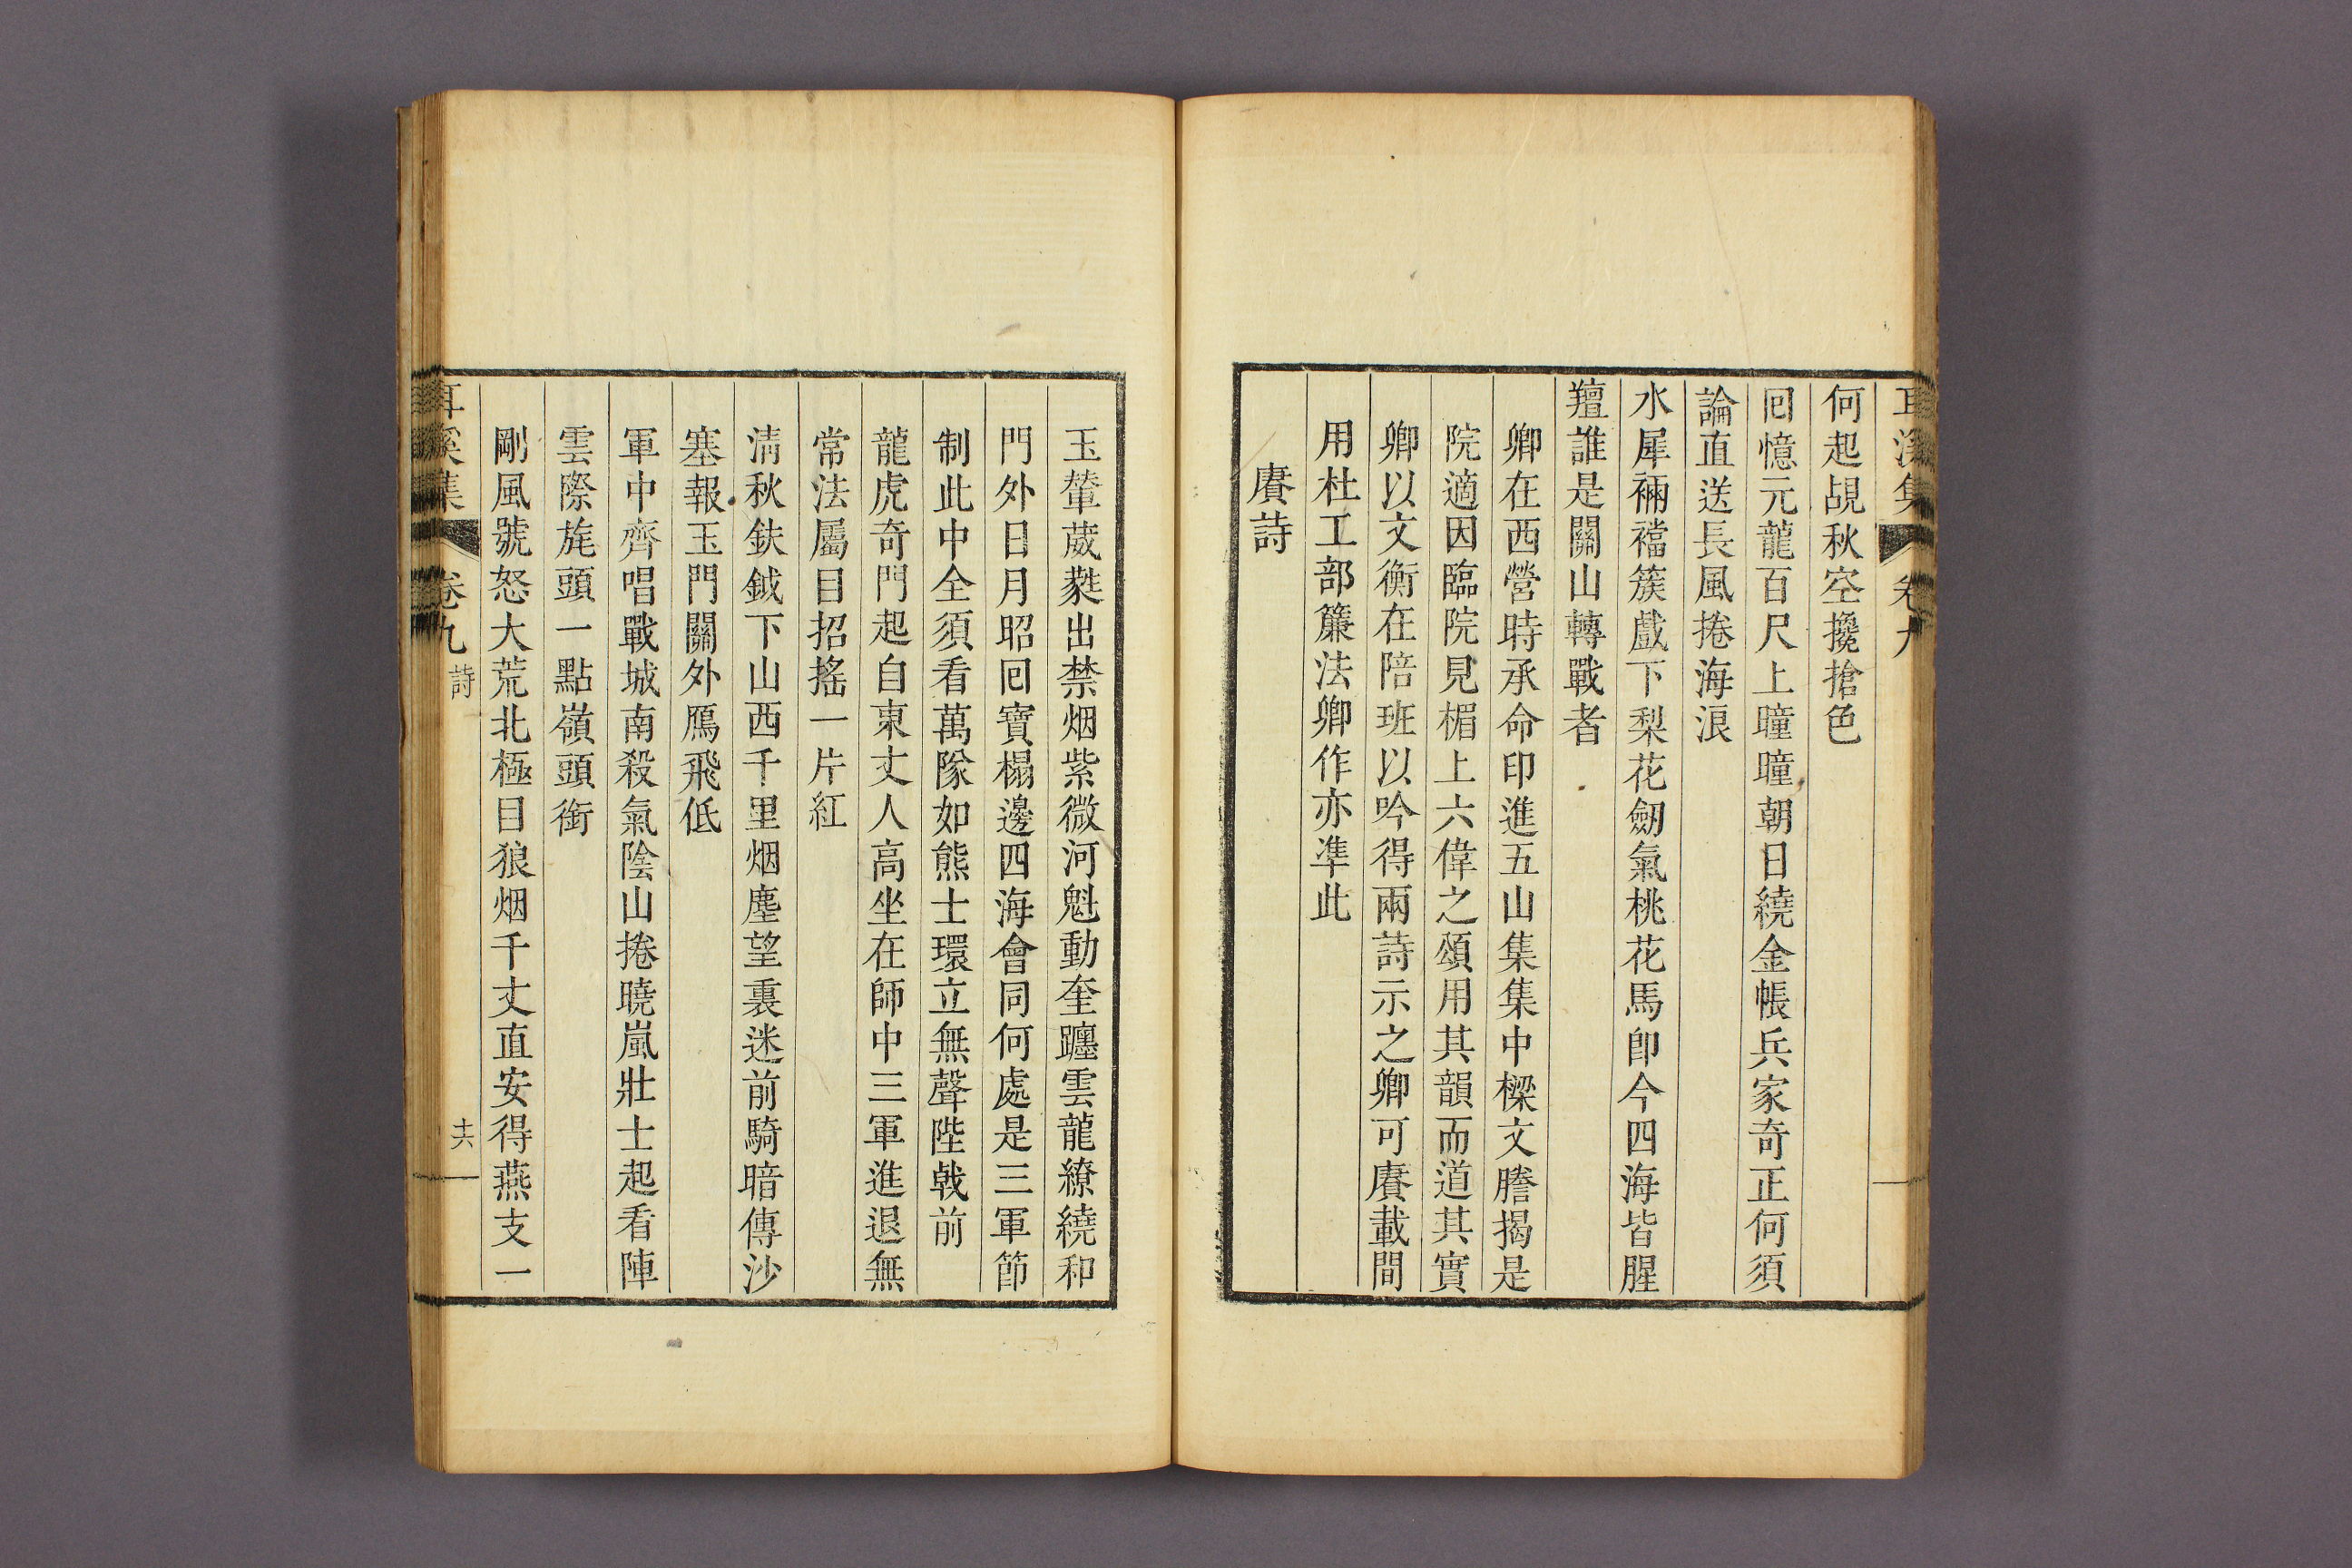 耳溪集 卷九
何起覘秋空攙搶色
回憶元龍百尺上曈曈朝日繞金帳兵家奇正何須
論直送長風捲海浪
水犀裲襠簇戲下梨花劒氣桃花馬卽今四海皆腥
羶誰是關山轉戰者
卿在西營時承命印進五山集集中樑文謄揭是
院適因臨院見楣上六偉之頌用其韻而道其實
卿以文衡在陪班以吟得兩詩示之卿可賡載間
用杜工部簾法卿作亦準此
賡詩
玉輦葳蕤出禁烟紫微河魁動奎躔雲龍繚繞和
門外日月昭回寶榻邊四海會同何處是三軍節
制此中全須看萬隊如熊士環立無聲陛戟前
龍虎奇門起自東丈人高坐在師中三軍進退無
常法屬目招搖一片紅
淸秋鈇鉞下山西千里烟塵望裏迷前騎暗傳沙
塞報玉門關外鴈飛低
軍中齊唱戰城南殺氣陰山捲曉嵐壯士起看陣
雲際旄頭一點嶺頭銜
剛風號怒大荒北極目狼烟千丈直安得燕支一
耳溪集 卷九 詩 十六